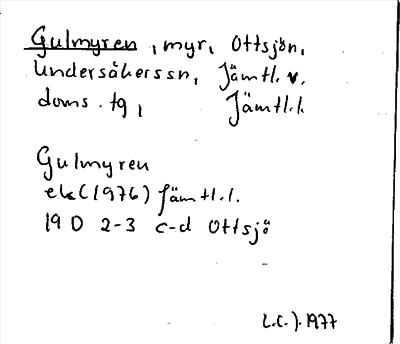 Gulmyren, myr, Ottsjön,
Undersåkers sn, Jämtl. v.
doms. tg, Jämtl.l.
Gulmyren
ek (1976) Jämtl.l.
19 D 2-3 c-d Ottsjö
L.C.J. 1977